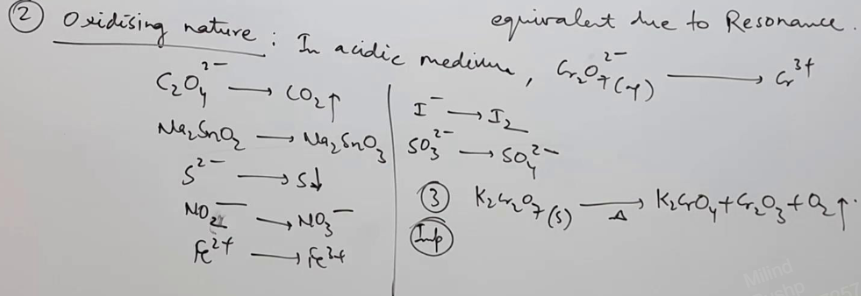 equivalent due to Resonance.
② Oxidising nature : In acidic medium, Cr₂O₇²⁻(aq) ⟶ Cr³⁺
C₂O₄²⁻ ⟶ CO₂↑
Na₂SnO₂ ⟶ Na₂SnO₃
S²⁻ ⟶ S↓
NO₂⁻ ⟶ NO₃⁻
Fe²⁺ ⟶ Fe³⁺
I⁻ ⟶ I₂
SO₃²⁻ ⟶ SO₄²⁻
③ K₂Cr₂O₇(s) ⟶ Δ K₂CrO₄ + Cr₂O₃ + O₂↑.
Imp
Milind